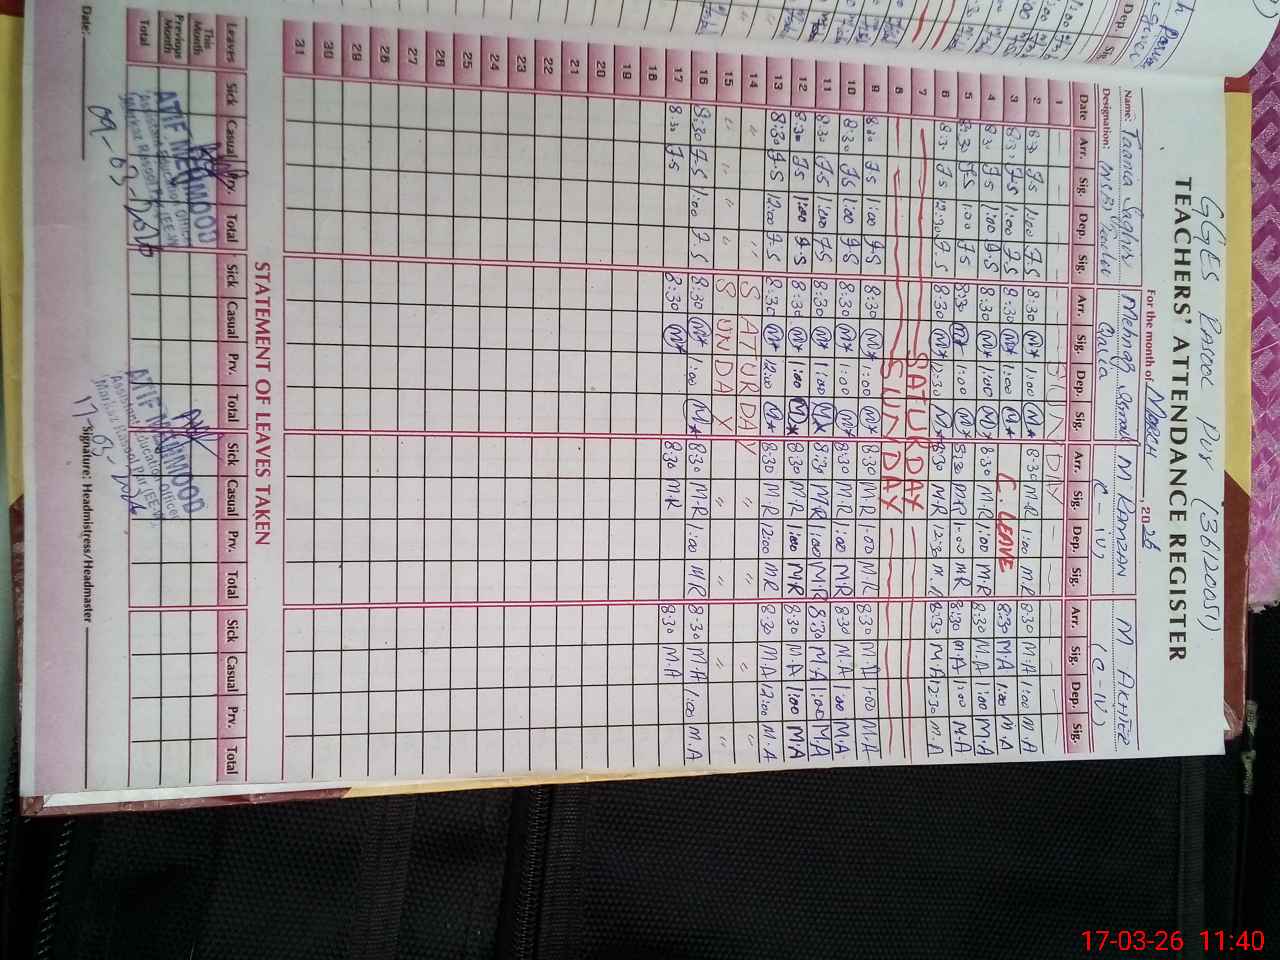 GGES RASOOL PUR (36120051)
TEACHERS' ATTENDANCE REGISTER
For the month of MARCH, 2026
Name: Taania Saghir Mehnaz M RAMZAN M AKHTER
Designation: C-IV (C-IV)
Date Arr. Sig. Dep. Sig. Arr. Sig. Dep. Sig. Arr. Sig. Dep. Sig. Arr. Sig. Dep. Sig.
1 SUNDAY
2 8:30 F.S 1:00 F.S 8:30 M* 1:00 M* 8:30 M.R 1:00 M.R 8:30 M.A 1:00 M.A
3 8:30 F.S 1:00 F.S 8:30 M* 1:00 M* C. LEAVE 8:30 M.A 1:00 M.A
4 8:30 F.S 1:00 F.S 8:30 M* 1:00 M* 8:30 M.R 1:00 M.R 8:30 M.A 1:00 M.A
5 8:30 F.S 1:00 F.S 8:30 M* 1:00 M* 8:30 M.R 1:00 M.R 8:30 M.A 1:00 M.A
6 8:30 F.S 12:30 F.S 8:30 M* 12:30 M* 8:30 M.R 12:30 M.R 8:30 M.A 12:30 M.A
7 SATURDAY
8 SUNDAY
9 8:30 F.S 1:00 F.S 8:30 M* 1:00 M* 8:30 M.R 1:00 M.R 8:30 M.A 1:00 M.A
10 8:30 F.S 1:00 F.S 8:30 M* 1:00 M* 8:30 M.R 1:00 M.R 8:30 M.A 1:00 M.A
11 8:30 F.S 1:00 F.S 8:30 M* 1:00 M* 8:30 M.R 1:00 M.R 8:30 M.A 1:00 M.A
12 8:30 F.S 1:00 F.S 8:30 M* 1:00 M* 8:30 M.R 1:00 M.R 8:30 M.A 1:00 M.A
13 8:30 F.S 12:00 F.S 8:30 M* 12:00 M* 8:30 M.R 12:00 M.R 8:30 M.A 12:00 M.A
14 " " " SATURDAY " " " " "
15 " " " SUNDAY " " " "
16 8:30 F.S 1:00 F.S 8:30 M* 1:00 M* 8:30 M.R 1:00 M.R 8:30 M.A 1:00 M.A
17 8:30 F.S 8:30 M* 8:30 M.R 8:30 M.A
18
19
20
21
22
23
24
25
26
27
28
29
30
31
STATEMENT OF LEAVES TAKEN
Leaves Sick Casual Prv. Total Sick Casual Prv. Total Sick Casual Prv. Total Sick Casual Prv. Total
This Month
Previous Month
Total
ATIF MEHMOOD
Assistant Education Officer
Markaz Rasool Pur (EE-W)
09-03-2026
ATIF MEHMOOD
Assistant Education Officer
Markaz Rasool Pur (EE-W)
17-03-2026
Date: Signature: Headmistress/Headmaster
17-03-26 11:40